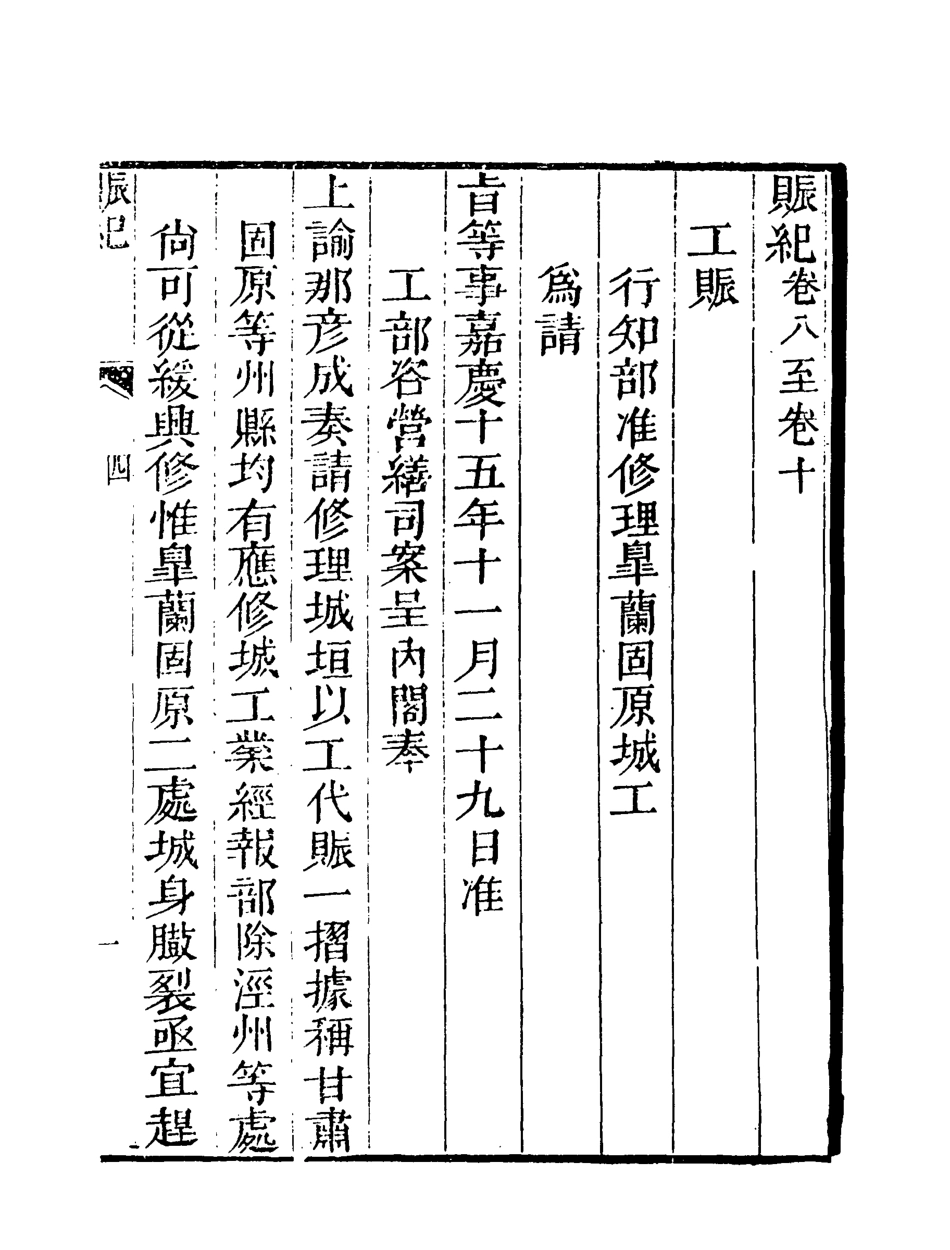 賑紀卷八至卷十
工賑
行知部准修理臯蘭固原城工
爲請
旨等事嘉慶十五年十一月二十九日准
工部咨營繕司案呈內閣奉
上諭那彦成奏請修理城垣以工代賑一摺據稱甘肅
固原等州縣均有應修城工業經報部除涇州等處
尙可從緩興修惟臯蘭固原二處城身臌裂亟宜趕
賑紀 四 一